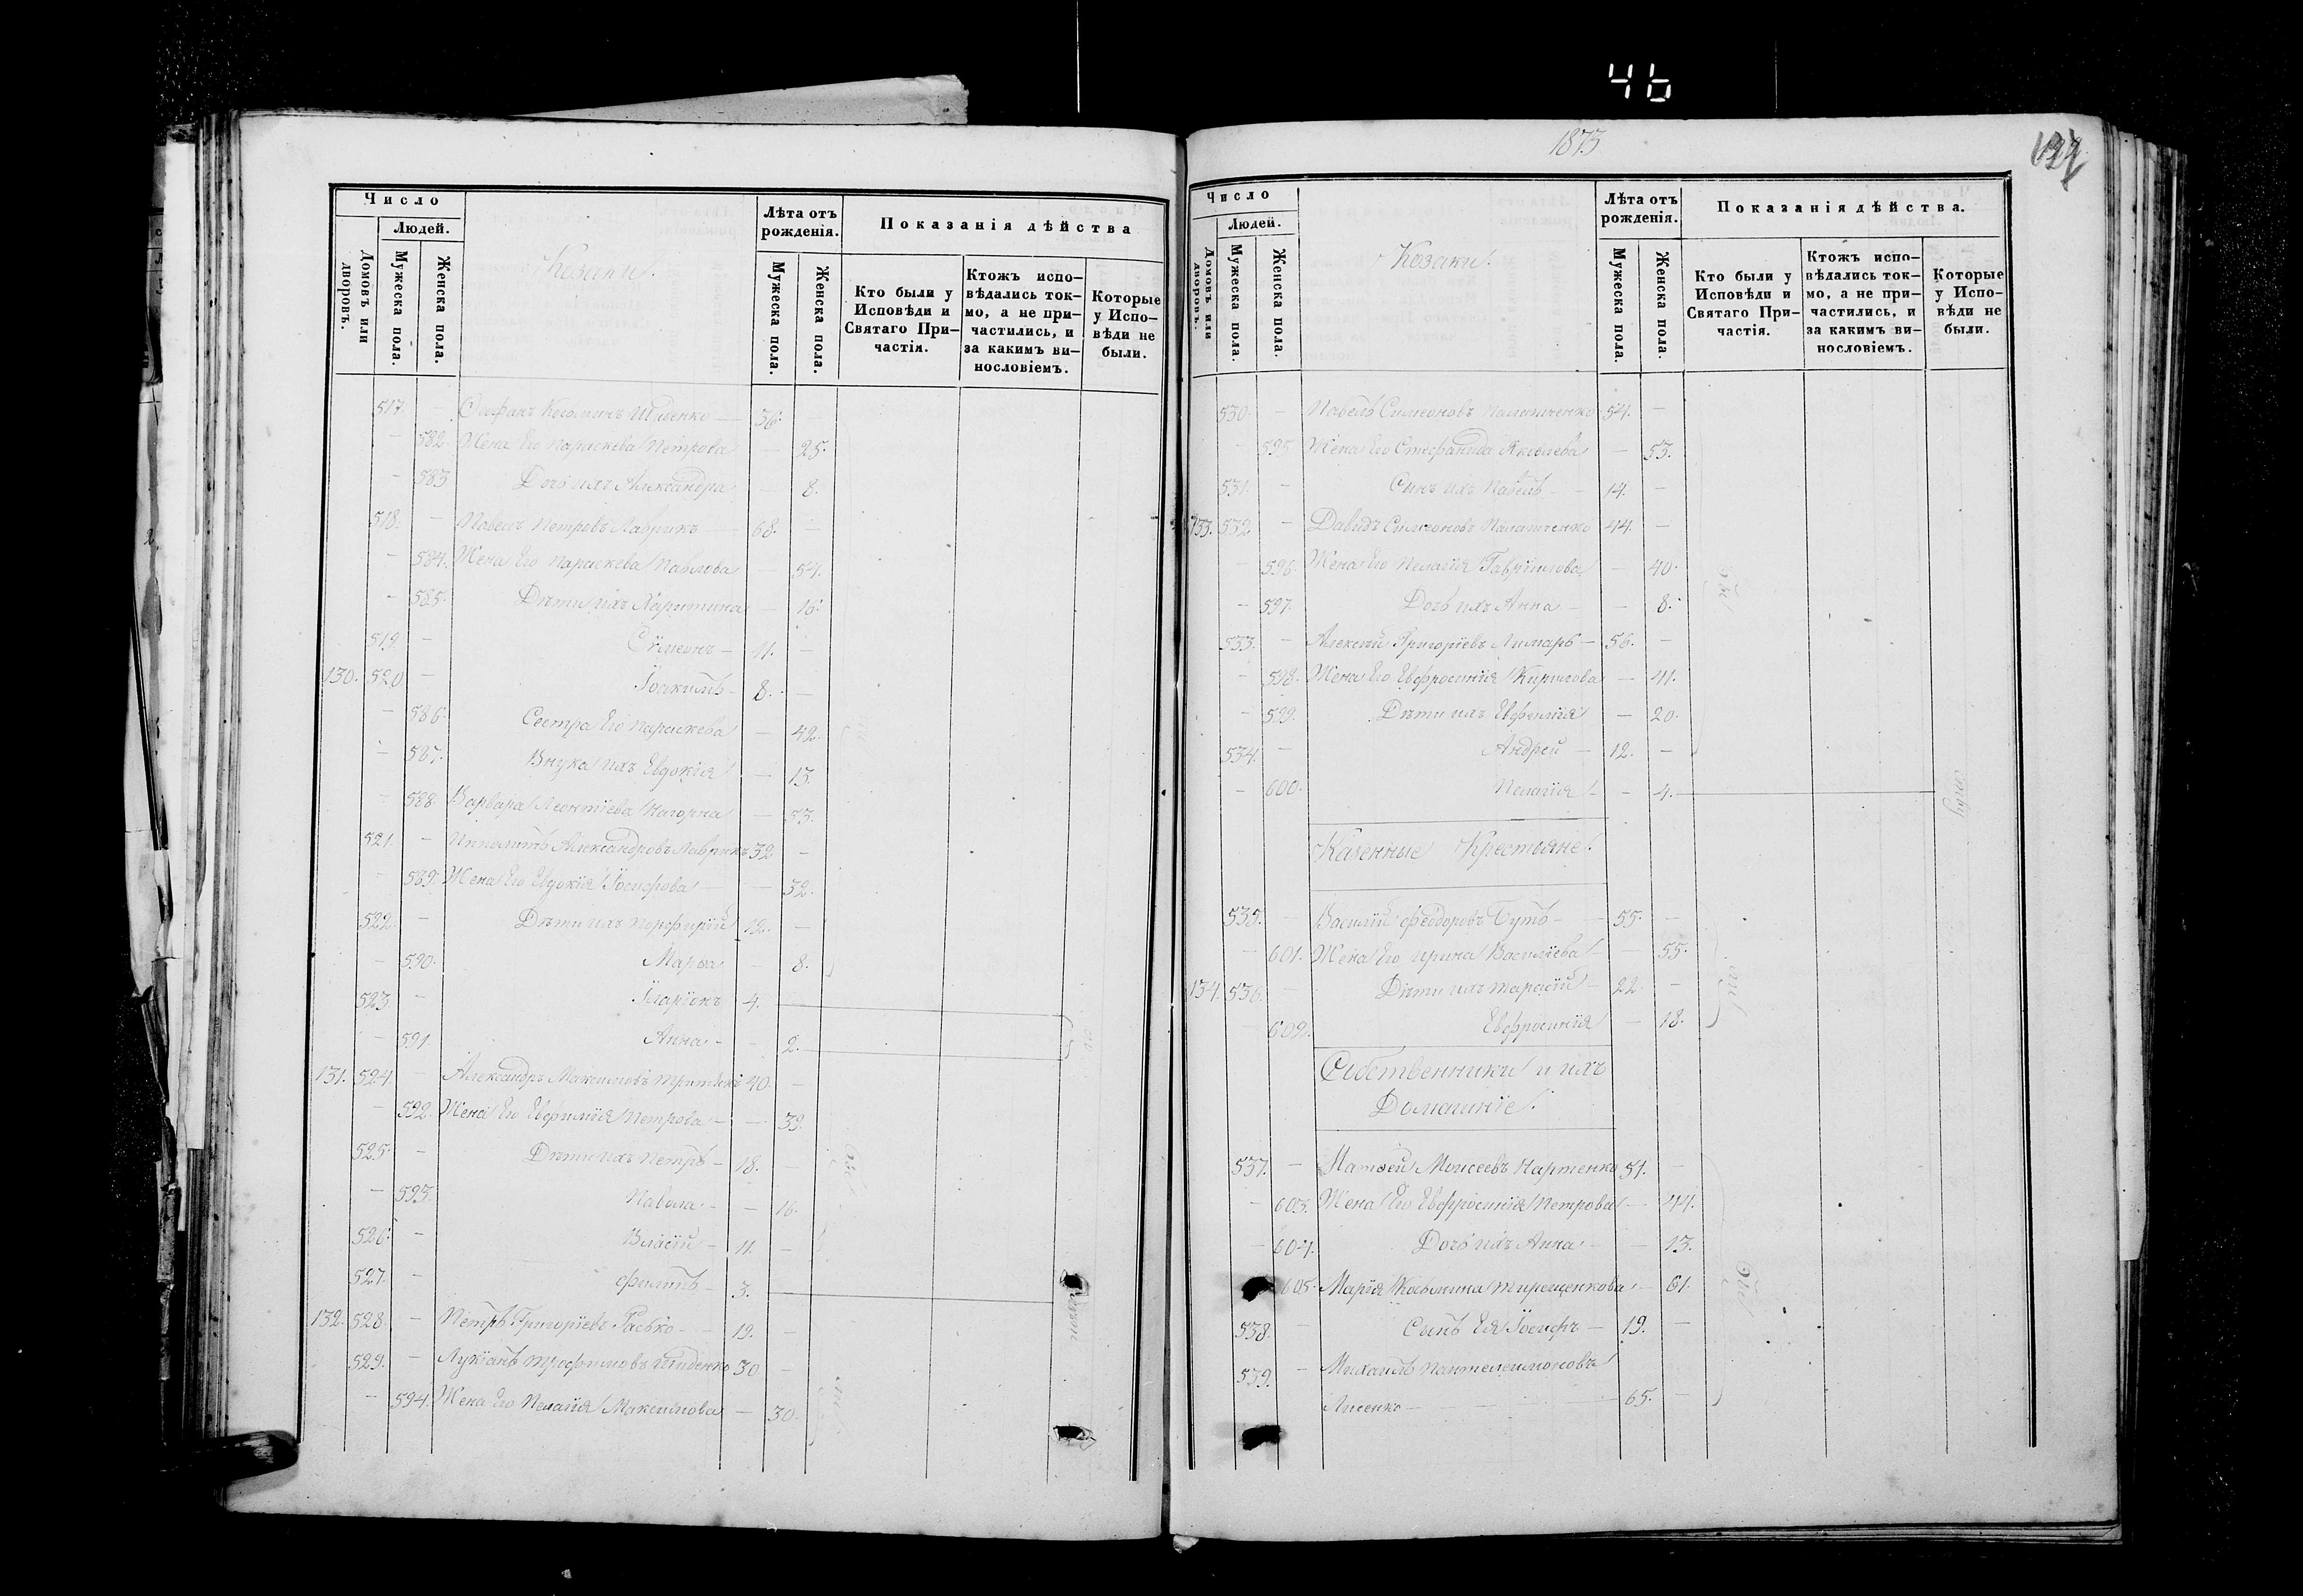 46
Число
Людей.
Домовъ или дворовъ.
Мужеска пола.
Женска пола.
Козаки.
Лѣта отъ рожденія.
Мужеска пола.
Женска пола.
Показанія дѣйства
Кто были у Исповѣди и Святаго Причастія.
Ктожъ исповѣдались токмо, а не причастились, и за какимъ винословіемъ.
Которые у Исповѣди не были.
517. Стефанъ Косминъ Шиденко 36.
582. Жена Его Параскева Петрова 25.
583 Дочь ихъ Александра 8.
518. Павелъ Петровъ Лаврикъ 68.
584. Жена Его Параскева Павлова 54.
585. Дѣти ихъ Харитина 16.
519. Сѷмеонъ 11.
130. 520 Іоакимъ 8.
586. Сестра Его Параскева 42.
587. Внука ихъ Евдокія 13.
588. Варвара Леонтіева Нагорна 53.
521. Ипполитъ Александровъ Лаврикъ 32
589. Жена Его Евдокія Іосифова 32.
522. Дѣти ихъ Порфирій 12.
590. Марѳа 8.
523. Іларіонъ 4.
591. Анна 2.
131. 524. Александръ Максимовъ 40.
592. Жена Его Евфимія Петрова 39.
525. Дѣти ихъ Петръ 18.
593. Павола 16.
526. Власій 11.
527. Филипъ 3.
132. 528. Петръ Григоріевъ 19.
529. Лукіанъ Трофимовъ Шиденко 30
594. Жена Его Пелагія Максимова 30.
1873
Число
Людей.
Домовъ или дворовъ.
Мужеска пола.
Женска пола.
Козаки.
Лѣта отъ рожденія.
Мужеска пола.
Женска пола.
Показанія дѣйства.
Кто были у Исповѣди и Святаго Причастія.
Ктожъ исповѣдались токмо, а не причастились, и за какимъ винословіемъ.
Которые у Исповѣди не были.
530. Павелъ Симеоновъ 54.
595 Жена Его Стефанида Яковлева 53.
531. Сынъ ихъ Павелъ 14.
133. 532 Давидъ Симеоновъ 44.
596. Жена Его Пелагія Гавріилова 40.
597. Дочь ихъ Анна 8.
533. Алексѣй Григоріевъ Лимарь 56.
598. Жена Его Евфросинія Кирилова 41.
599. Дѣти ихъ Евфимія 20.
534. Андрей 12.
600. Пелагія 4.
Казенные Крестьяне.
535. Василій Феодоровъ Бутъ 55.
601. Жена Его Ирина Василіева 55.
134. 536. Дѣти ихъ Тарасій 22.
602. Евфросинія 18.
Собственники и ихъ
Домашніе.
537. Матѳей Моисеевъ Нартенко 51.
603. Жена Его Евфросинія Петрова 44.
604. Дочь ихъ Анна 13.
605. Марія Космина Терещенкова 61.
538. Сынъ Ея Іосифъ 19.
539. Михаилъ Пантелеимоновъ
Лисенко 65.